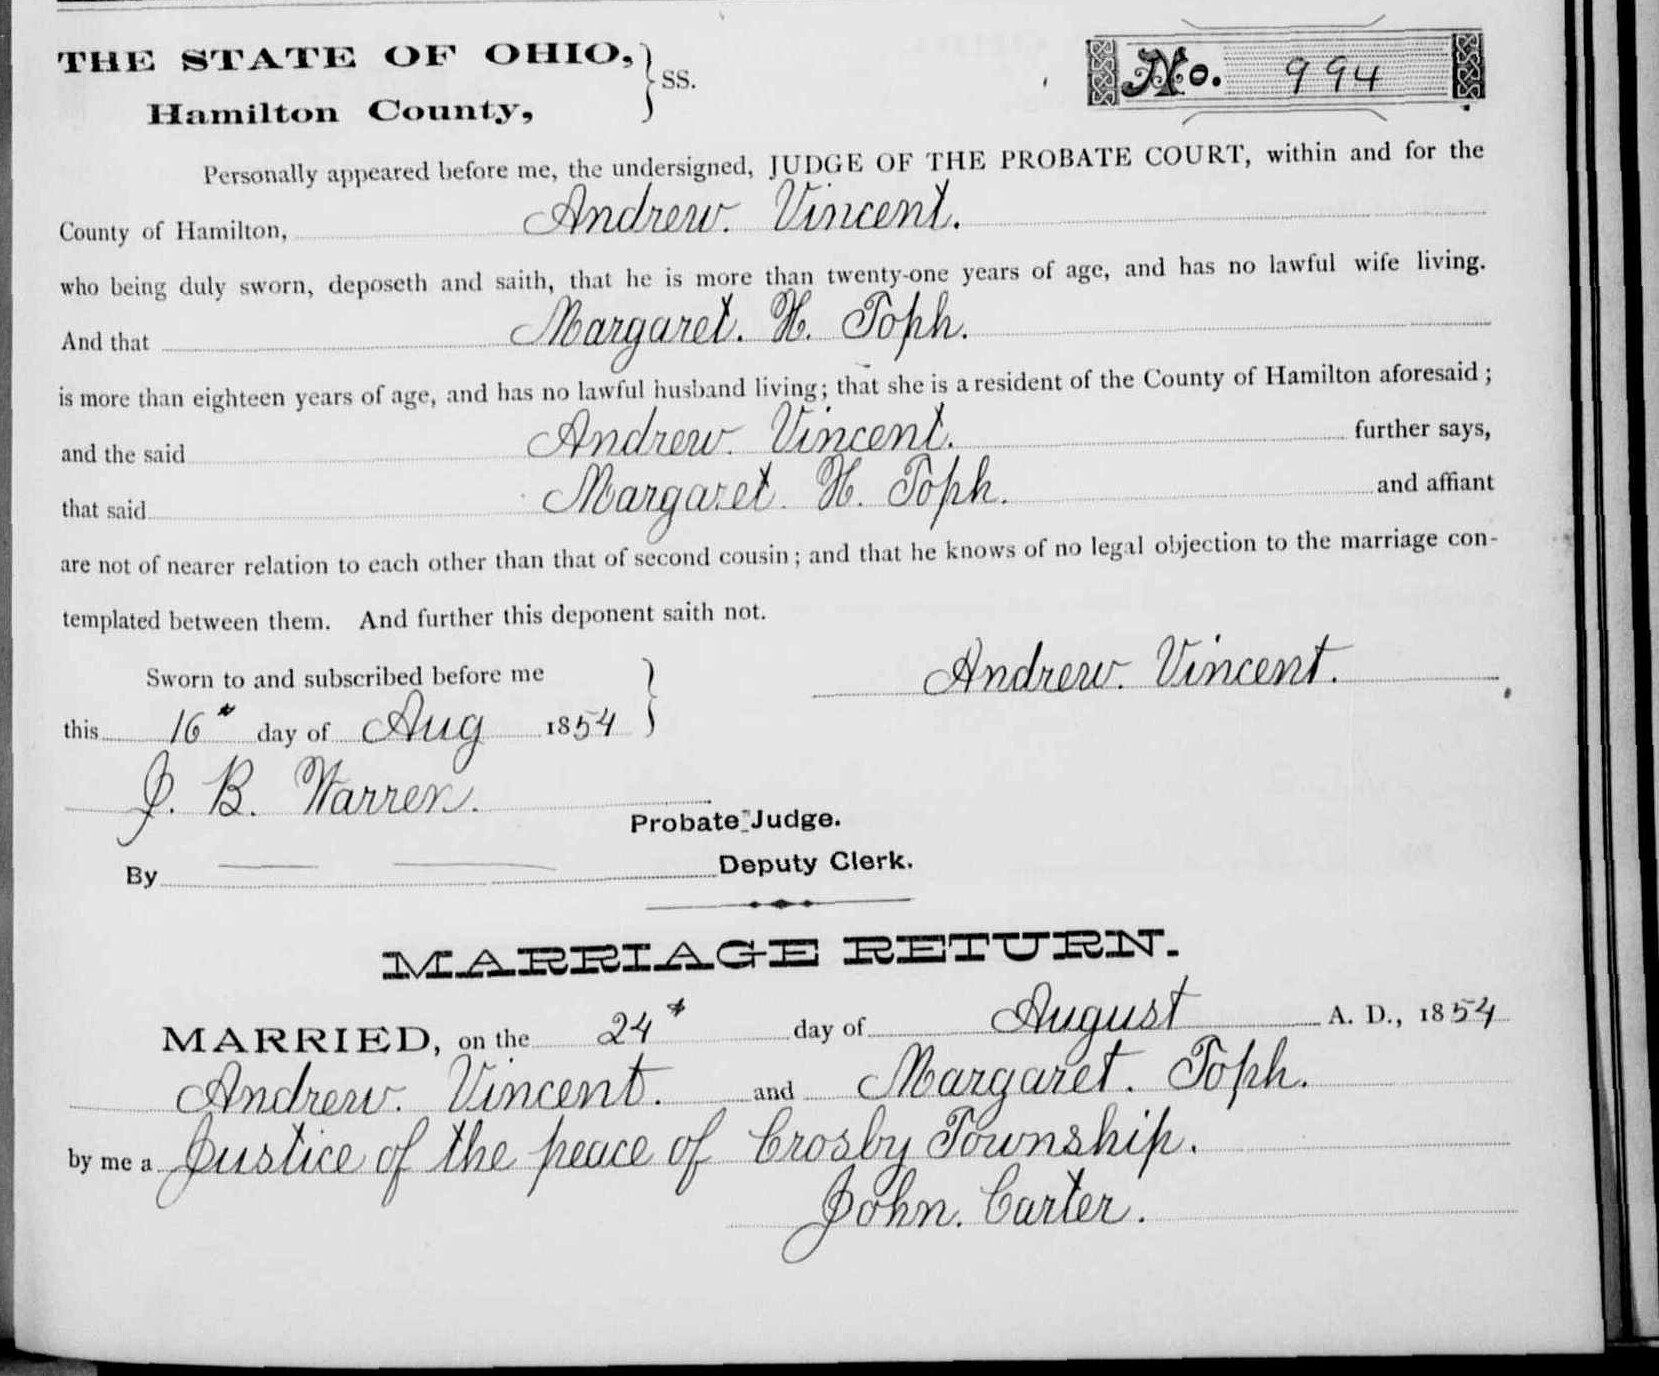 THE STATE OF OHIO, } SS. No. 994
Hamilton County,
Personally appeared before me, the undersigned, JUDGE OF THE PROBATE COURT, within and for the
County of Hamilton, Andrew. Vincent.
who being duly sworn, deposeth and saith, that he is more than twenty-one years of age, and has no lawful wife living.
And that Margaret. H. Toph.
is more than eighteen years of age, and has no lawful husband living; that she is a resident of the County of Hamilton aforesaid;
and the said Andrew. Vincent. further says,
that said Margaret. H. Toph. and affiant
are not of nearer relation to each other than that of second cousin; and that he knows of no legal objection to the marriage con-
templated between them. And further this deponent saith not.
Sworn to and subscribed before me } Andrew. Vincent.
this 16" day of Aug 1854
J. B. Warren.
Probate Judge.
By Deputy Clerk.
MARRIAGE RETURN.
MARRIED, on the 24" day of August A. D., 1854
Andrew. Vincent. and Margaret. Toph.
by me a Justice of the peace of Crosby Township.
John. Carter.